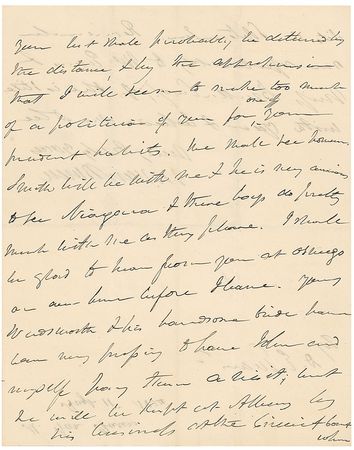 your but shall probably be deterred by
the distance, & by the apprehension
that I will seem to make too much
of a politician of you for
one of
your
prudent habits. We shall see however
Smith will be with me & he is very anxious
to see Niagara & these boys do pretty
much with me as they please. I shall
be glad to hear from you at Oswego
or before I leave. Young
Wadsworth & his handsome bride have
been very pressing to have John and
myself pay them a visit, but
he will be kept at Albany by
his business at the Circuit Court
when